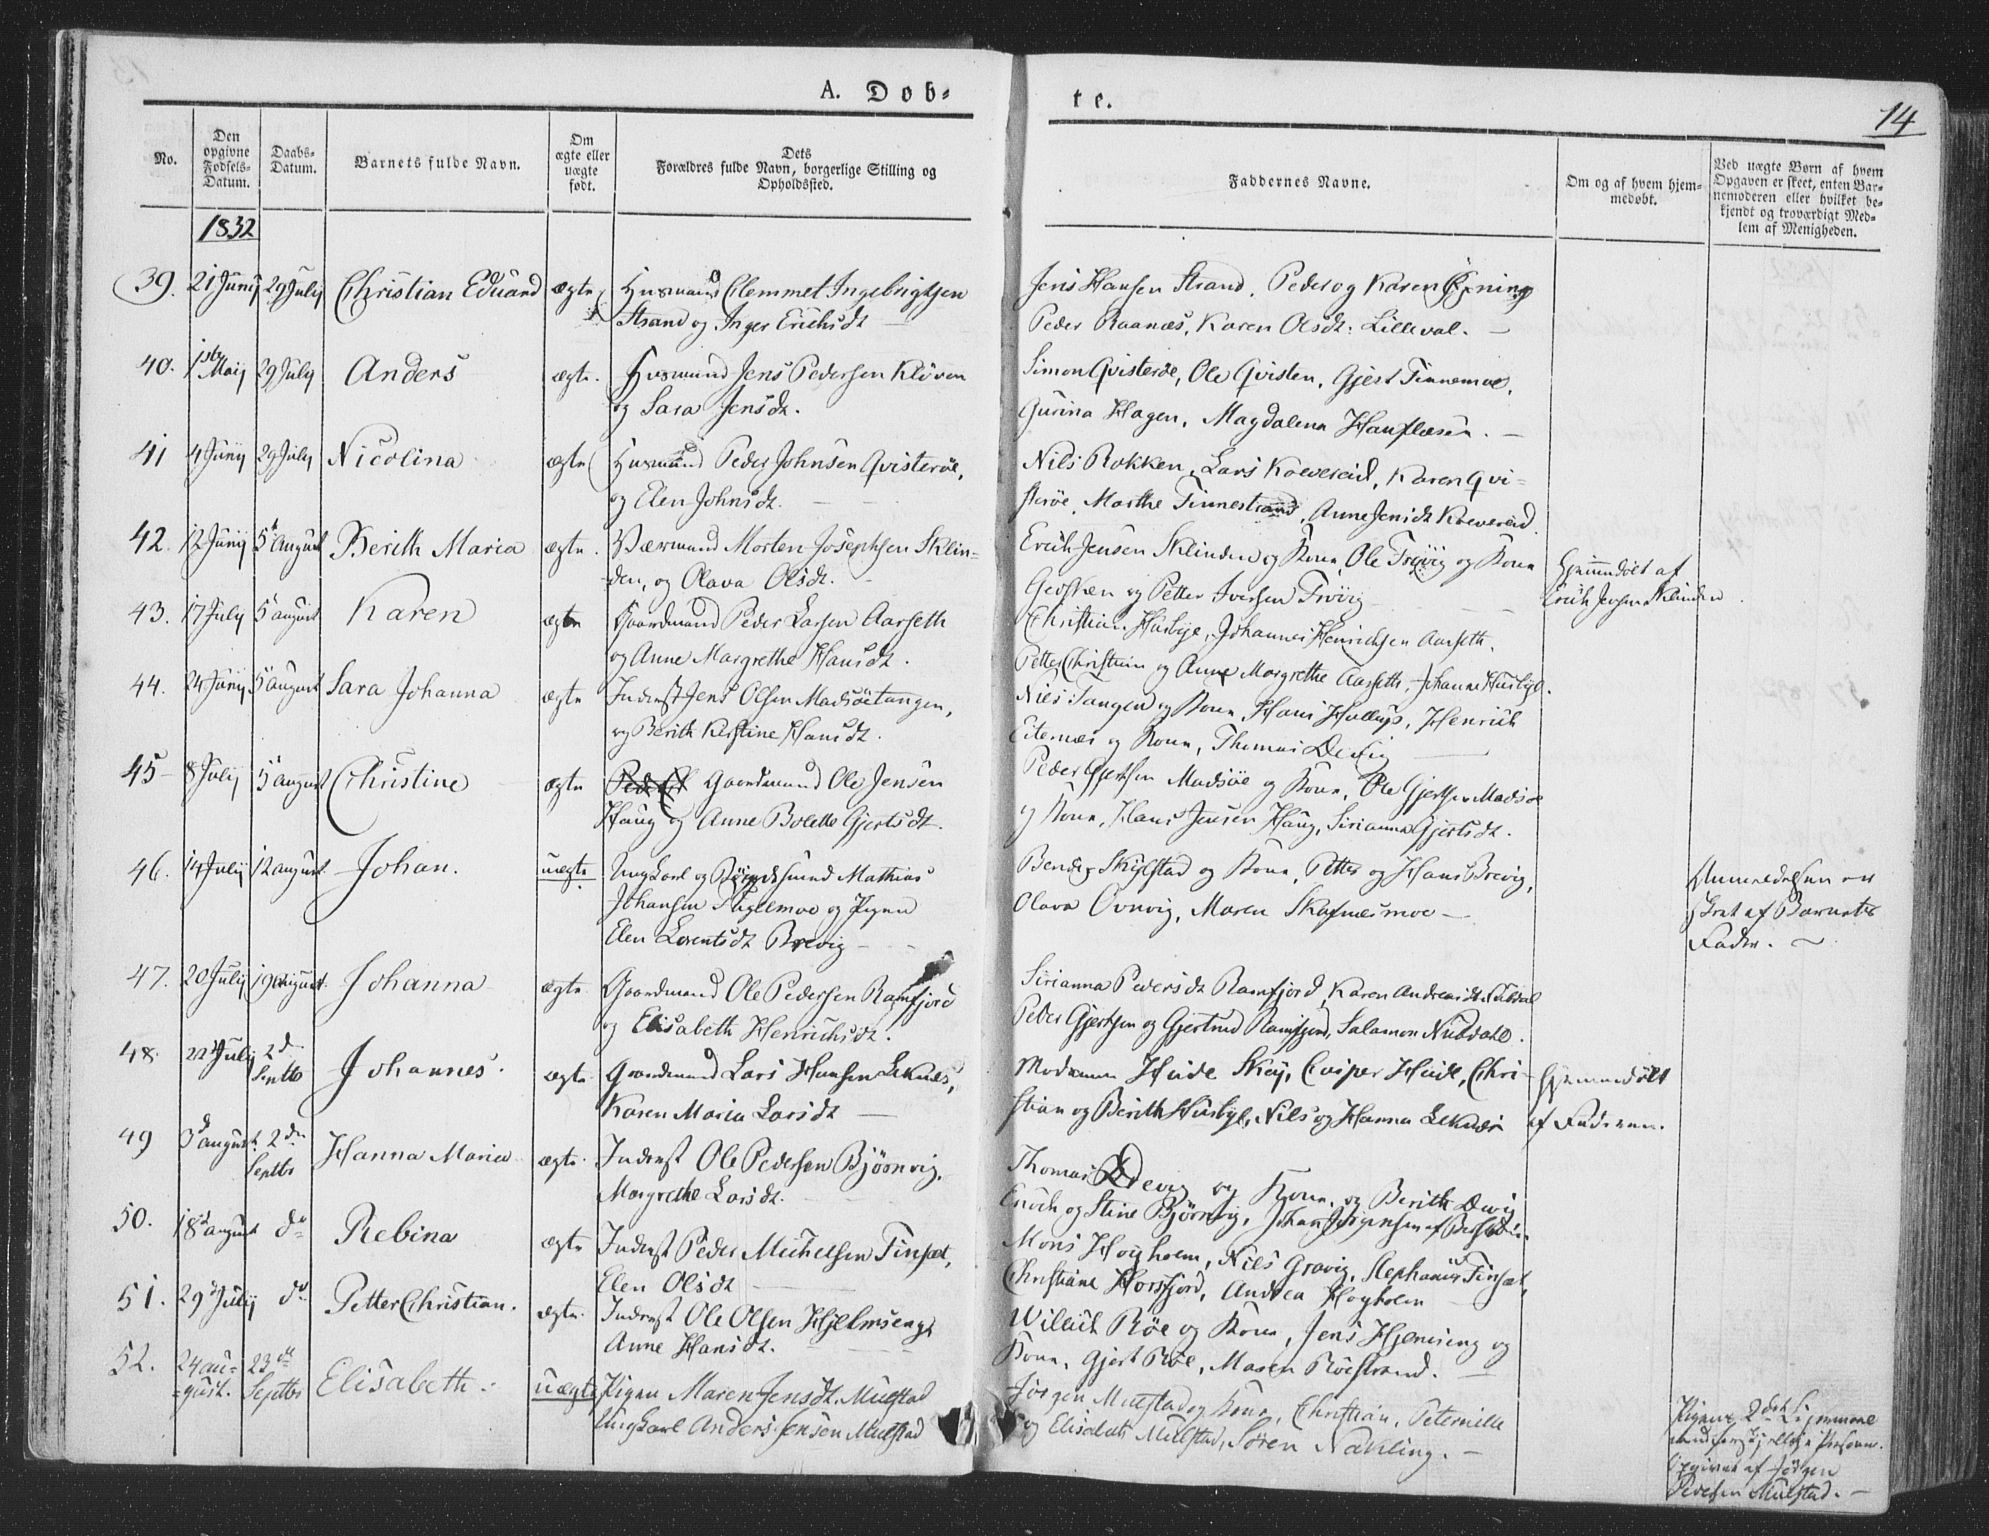 14
A. Døb-
te.
No.
Den opgivne Fødsels-Datum.
Daabs-Datum.
Barnets fulde Navn.
Om ægte eller uægte født.
Dets Forældres fulde Navn, borgerlige Stilling og Opholdssted.
Faddernes Navne.
Om og af hvem hjem-medøbt.
Ved uægte Børn af hvem Opgaven er skeet, enten Bar-nemoderen eller hvilket be-kjendt og troværdigt Med-lem af Menigheden.
1832
39. 21 Junij 29 July Christian Eduard ægte Husmand Clemmet Ingebrigtsen
Strand og Inger Erichsdt
Jens Hansen Strand. Peder og Karen
Peder Raanæs, Karen Olsdt: Lilleval.
40. 1ste Maij 29 July Anders ægte. Husmand Jens Pedersen Kløven
og Sara Jensdt.
Simon Qvisterøe, Ole Qvisten, Gjert Finnemoe,
Gurina Hagen, Magdalena
41 4 Junij 29 July Nicolina ægte Husmand Peder Johnsen Qvisterøe,
og Elen Johnsdt.
Nils Rokken, Lars Koevereid, Karen Qvi-
sterøe, Marthe Finnestrand, Anne Jensdt Koevereid
42. 12 Junij 5t August Berith Maria ægte. Morten Josephsen Sklin-
den, og Olava Olsdt.
Erich Jensen Sklinden og Kone, Ole Frøvig og Kone
og Petter Iversen Frøvig
Hjemmedøbt af
Erich Jensen Sklinden
43. 17 July 5t august Karen ægte Gaardmand Peder Larsen Aarseth
og Anne Margrethe Hansdt.
Christian Husbye, Johannes Henrichsen Aarseth.
Petter Christian og Anne Margrethe Aarseth, Johanna Husbye.
44. 24 Junij 5t august Sara Johanna ægte Inderst Jens Olsen Madsøetangen,
og Berith Kirstine Hansdt.
Nils Tangen og Kone, Hans, Henrich
Eiternæs og Kone, Thomas Devig
45 8 July 5t august Christine ægte Gaardmand Ole Jensen
Haug og Anne Bolette Gjertsdt.
Peder Gjertsen Madsøe og Kone, Ole Gjertsen Madsøe
og Kone, Hans Jensen Haug, Sirianna Gjertsdt.
46. 14 July 12 august Johan. uægte Ungkarl og Mathias
Johansen og Pigen
Elen Lorentsdt Brevig
og Kone, Petter og Hans Brevig,
Olava Ovnvig, Maren Skafnesmoe
Anmeldelsen er
skeet af Barnets
Fader.
47. 20 July 19 august. Johanna ægte Gaardmand Ole Pedersen Ramfjord
og Elisabeth Henrichsdt.
Sirianna Pedersdt Ramfjord, Karen Andreasdt
Peder Gjertsen og Gjertrud Ramfjord, Salamon Nubdahl.
48. 22 July 2d Septbr Johannes. ægte Gaardmand Lars Hansen Leknæs,
Karen Maria Larsdt
Madame Heide Skey, Casper Heide, Chri-
stian og Berith Husbye, Nils og Hanna Leknæs
Hjemmedøbt
af Faderen.
49 3d august. 2d Septbr Hanna Maria ægte Inderst Ole Pedersen Bjørnvig,
Margrethe Larsdt.
Thomas Devig og Kone, og Berith Devig
Erich og Stine Bjørnvig, Johan Jørgensen af
50. 18d august do Rebina ægte Inderst Peder Michelsen Finsæt,
Elen Olsdt
Mons Høyholm, Nils Gravig, Stephanus Finsæt,
Christiane Horsfjord, Andrea Høyholm
51. 29d July do Petter Christian. ægte Inderst Ole Olsen Hjelmseng,
Anne Hansdt.
Willich Røe og Kone, Jens Hjemseng og
Kone, Gjert Røe, Maren Røestrand.
52. 24 au-gust. 23de Septbr Elisabeth. uægte Pigen Maren Jensdt. Mulstad
Ungkarl Anders Jensen Mulstad
Jørgen Mulstad og Kone, Christian, Peternille
og Elisabeth Mulstad, Søren Nakling.
Pigens 2det
Opgivet af Jørgen
Pedersen Mulstad.